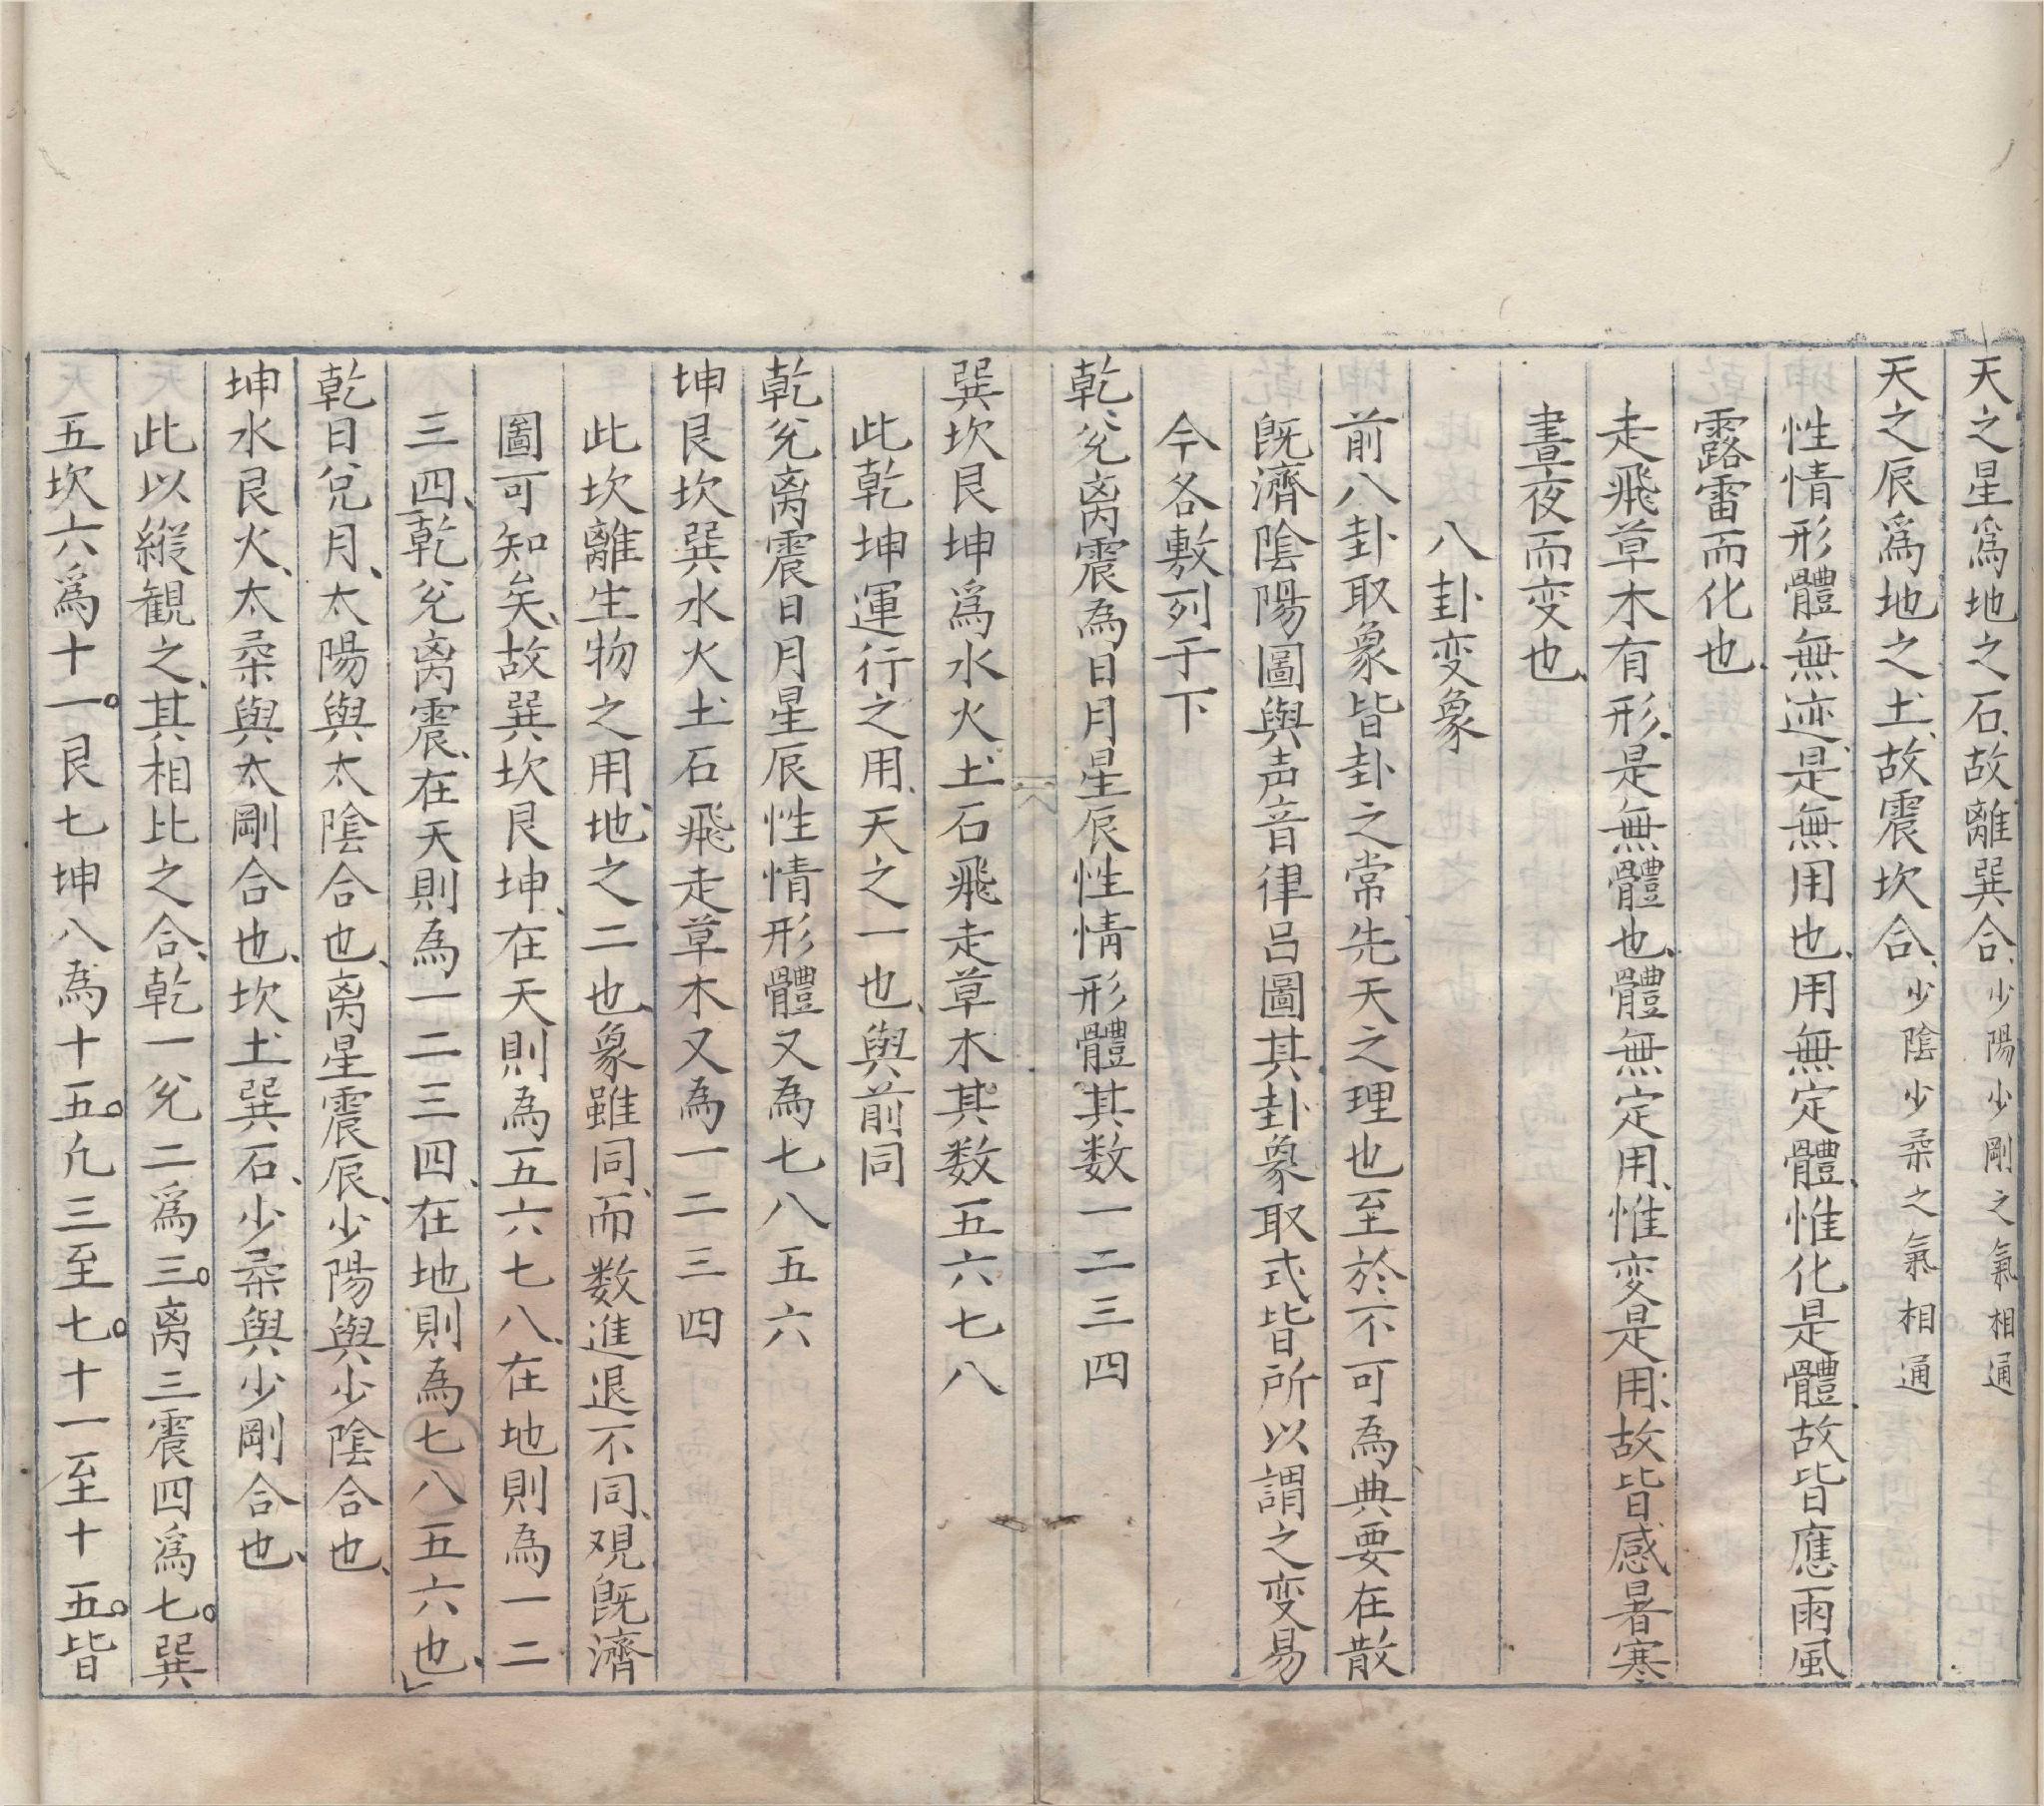 天之星爲地之石、故離巽合、少陽少剛之氣相通
天之辰爲地之土、故震坎合、少陰少柔之氣相通
性情形體無迹、是無用也、用無定體、惟化是體、故皆應雨風
露雷而化也、
走飛草木有形、是無體也、體無定用、惟変是用、故皆感暑寒
晝夜而変也、
八卦变象
前八卦取象皆卦之常先天之理也至於不可為典要在散
旣濟陰陽圖與声音律呂圖其卦象取式皆所以謂之变易
今各敷列于下
乾、兊离震為日月星辰性情形體其数一二三四
巽坎艮坤爲水火土石飛走草木其数五六七八
此乾坤運行之用、天之一也、與前同
乾兊离震日月星辰性情形體又為七八五六
坤艮坎巽水火土石飛走草木又為一二三四
此坎離生物之用、地之二也、象雖同、而数進退不同、观旣濟
圖可知矣、故巽坎艮坤、在天則為五六七八、在地則為一二
三四、乾兊离震、在天則為一二三四、在地則為七八五六也、」
乾日兊月、太陽與太陰合也、离星震辰、少陽與少陰合也、
坤水艮火、太柔與太剛合也、坎土巽石、少柔與少剛合也、
此以縦観之、其相比之合、乾一兊二爲三。离三震四爲七。巽
五坎六爲十一。艮七坤八為十五。凢三至七。十一至十五。皆